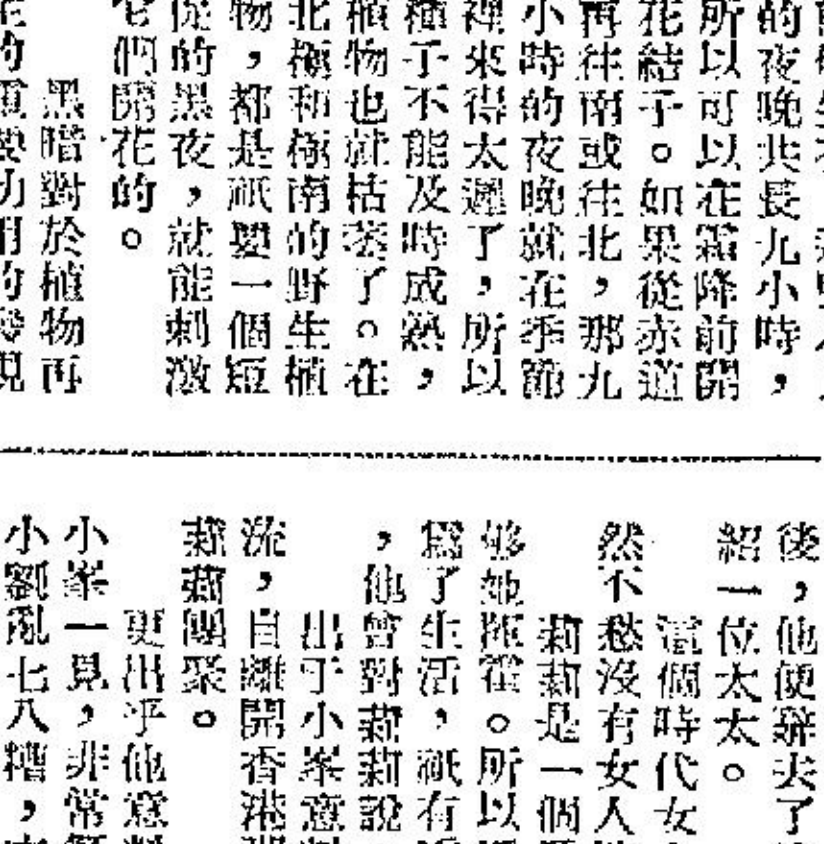 的夜晚共長九小時，
所以可以在霜降前開
花結子。如果從赤道
再往南或往北，那九
小時的夜晚就在季節
裡來得太遲了，所以
種子不能及時成熟，
植物也就枯萎了。在
北極和極南的野生植
物，都是祇要一個短
促的黑夜，就能刺激
它們開花的。
黑暗對於植物再
的重要功用的發現
後，他便辭去了
紹一位太太。
這個時代女
然不愁沒有女人
莉莉是一個
够她揮霍。所以
爲了生活，祇有
，他曾對莉莉說
出于小峯意
流，自離開香港
莉莉團聚。
更出乎他意料
小峯一見，非常
小劉亂七八糟，